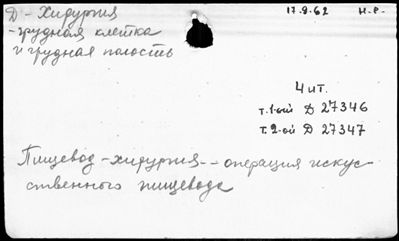 Д - Хирургия
17.9.62 Н.С.
- грудная клетка
и грудная полость
4 ит.
т. 1-ой Д 27346
т. 2-ой Д 27347
Пищевод - хирургия -- операция искус-
ственного пищевода